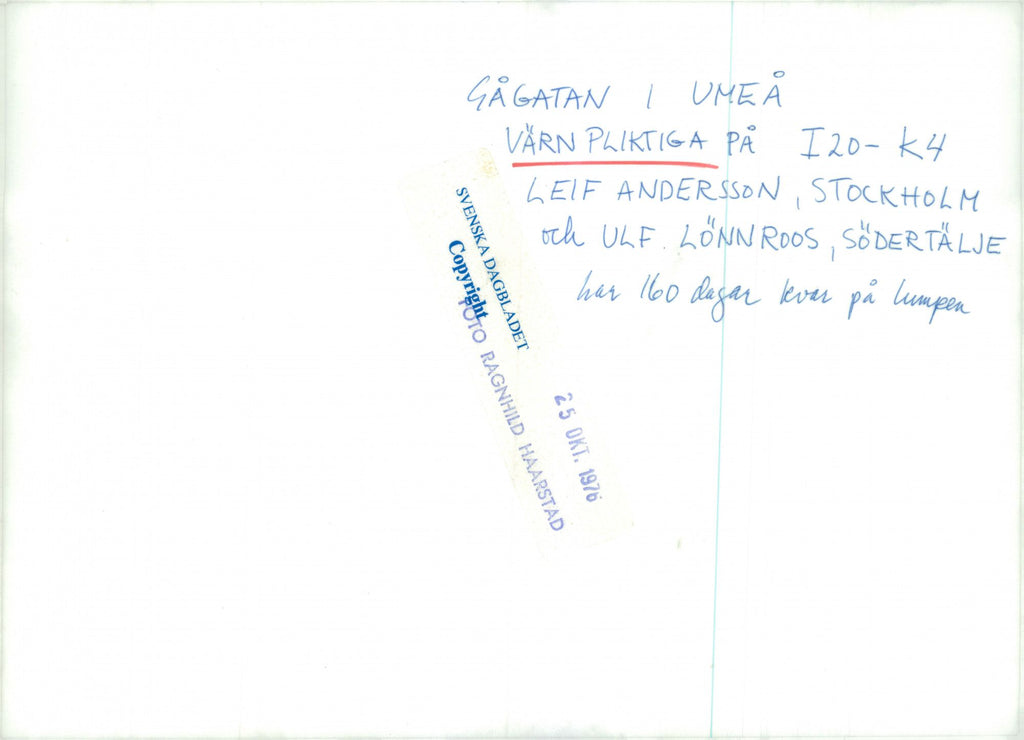 GÅGATAN I UMEÅ
VÄRNPLIKTIGA PÅ I20-K4
LEIF ANDERSSON, STOCKHOLM
och ULF. LÖNNROOS, SÖDERTÄLJE
har 160 dagar kvar på lumpen
SVENSKA DAGBLADET
Copyright
FOTO RAGNHILD HAARSTAD
25 OKT. 1976